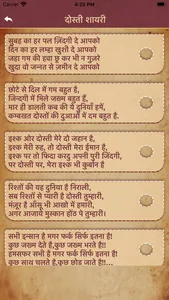 4:23 PM
दोस्ती शायरी
सुबह का हर पल ज़िंदगी दे आपको
दिन का हर लम्हा खुशी दे आपको
जहा गम की हवा छू कर भी न गुज़रे
खुदा वो जन्नत से ज़मीन दे आपको
छोटे से दिल में गम बहुत है,
ज़िन्दगी में मिले जख्म बहुत हैं,
मार ही डालती कब की ये दुनियां हमें,
कम्बखत दोस्तों की दुआओं में दम बहुत है.
इश्क ओर दोस्ती मेरे दो जहान है,
इश्क मेरी रुह, तो दोस्ती मेरा ईमान है,
इश्क पर तो फिदा करदु अपनी पुरी ज़िंदगी,
पर दोस्ती पर, मेरा इश्क भी कुर्बान है
रिश्तों की यह दुनिया है निराली,
सब रिश्तों से प्यारी है दोस्ती तुम्हारी,
मंज़ूर है आँसू भी आखो में हमारी,
अगर आजाये मुस्कान होंठ पे तुम्हारी।
सभी इन्सान है मगर फर्क सिर्फ इतना है!
कुछ जख्म देते है,कुछ जख्म भरते है!!
हमसफर सभी है मगर फर्क सिर्फ इतना है!
कुछ साथ चलते है,कुछ छोड जाते है!!...